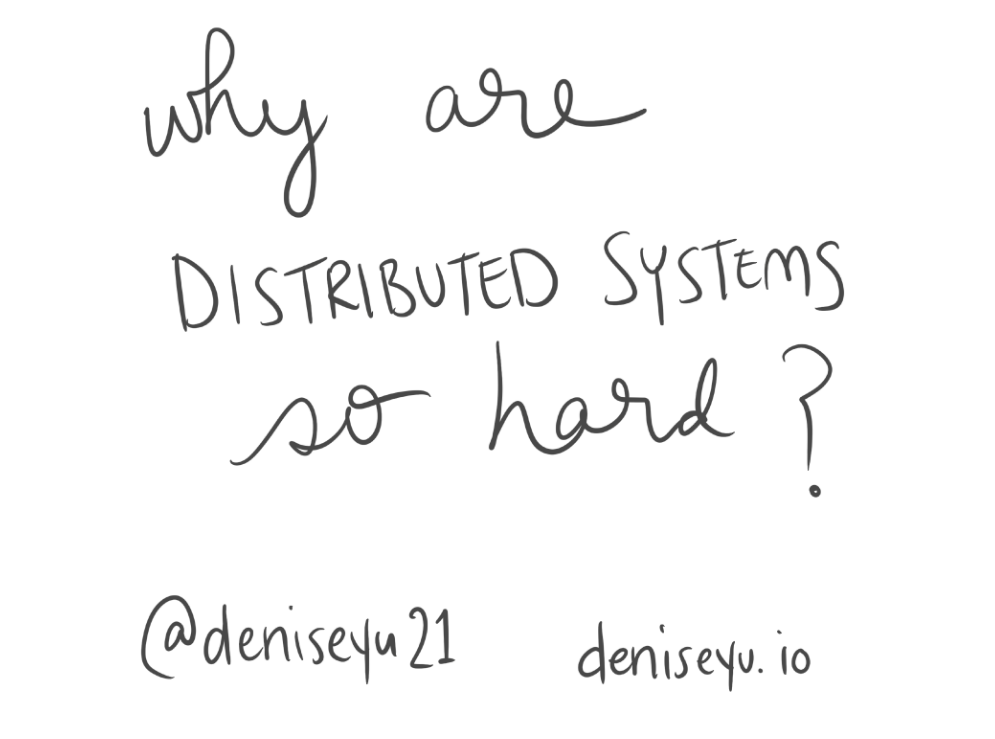 why are
DISTRIBUTED SYSTEMS
so hard?
@deniseyu21 deniseyu.io